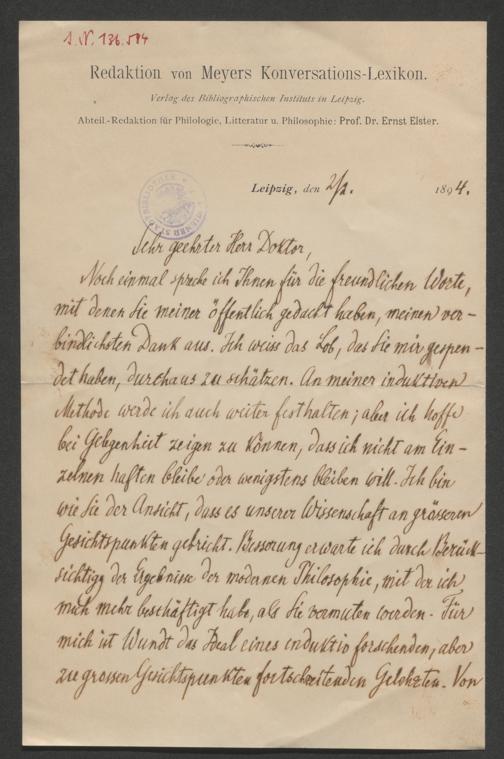 J. N. 136.584
Redaktion von Meyers Konversations-Lexikon.
Verlag des Bibliographischen Instituts in Leipzig.
Abteil.-Redaktion für Philologie, Litteratur u. Philosophie: Prof. Dr. Ernst Elster.
Leipzig, den 2/2. 1894.
Sehr geehrter Herr Doktor,
Noch einmal spreche ich Ihnen für die freundlichen Worte,
mit denen Sie meiner öffentlich gedacht haben, meinen ver-
bindlichsten Dank aus. Ich weiss das Lob, das Sie mir gespen-
det haben, durchaus zu schätzen. An meiner induktiven
Methode werde ich auch weiter festhalten; aber ich hoffe
bei Gelegenheit zeigen zu können, dass ich nicht am Ein-
zelnen haften bleibe oder wenigstens bleiben will. Ich bin
wie Sie der Ansicht, dass es unserer Wissenschaft an grösseren
Gesichtspunkten gebricht. Besserung erwarte ich durch Berück-
sichtigg der Ergebnisse der modernen Philosophie, mit der ich
mich mehr beschäftigt habe, als Sie vermuten werden. Für
mich ist Wundt das Ideal eines induktiv forschenden, aber
zu grossen Gesichtspunkten fortschreitenden Gelehrten. Von